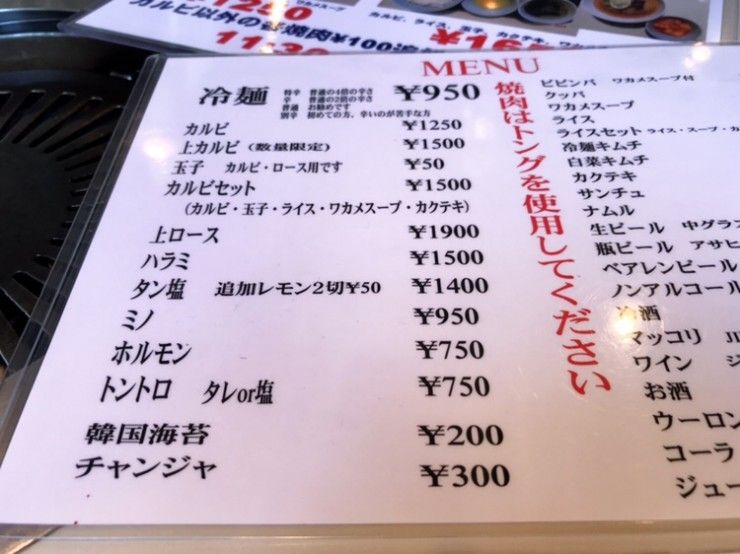 ¥1250
ワカメスープ
カルビ、ライス、玉子、カクテキ、
カルビ以外の
¥100
11:30
MENU
冷麺 ¥950
特辛 普通の4倍の辛さ
辛 普通の2倍の辛さ
普通 お勧めです
別辛 初めての方、辛いのが苦手な方
カルビ ¥1250
上カルビ（数量限定） ¥1500
玉子 カルビ・ロース用です ¥50
カルビセット ¥1500
（カルビ・玉子・ライス・ワカメスープ・カクテキ）
上ロース ¥1900
ハラミ ¥1500
タン塩 追加レモン2切¥50 ¥1400
ミノ ¥950
ホルモン ¥750
トントロ タレor塩 ¥750
韓国海苔 ¥200
チャンジャ ¥300
焼肉はトングを使用してください
ビビンバ ワカメスープ付
クッパ
ワカメスープ
ライス
ライスセット ライス・スープ・カ
冷麺キムチ
白菜キムチ
カクテキ
サンチュ
ナムル
生ビール 中グラス
瓶ビール アサヒ
ベアレンビール
ノンアルコール
冷酒
マッコリ
ワイン
お酒
ウーロン
コーラ
ジュー